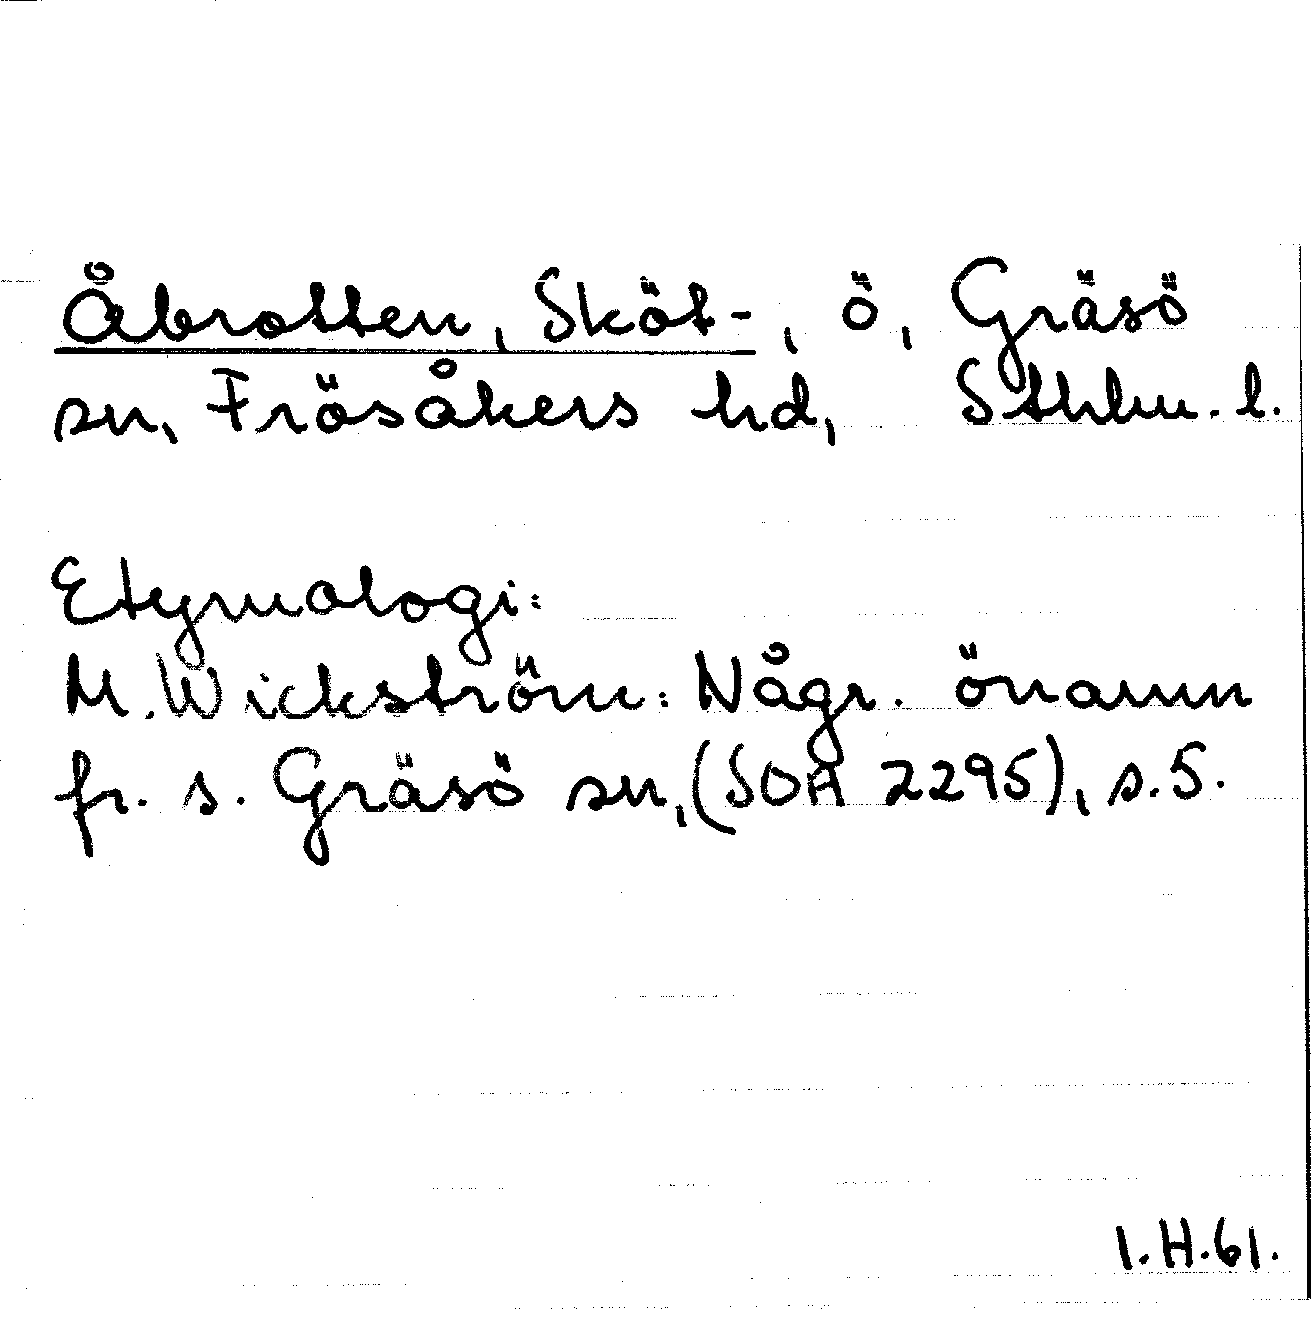 Åbrotten, Sköt-, ö, Gräsö
sn, Frösåkers hd, Sthlm. l.
Etymologi:
M. Wickström: Någr. önamn
fr. s. Gräsö sn, (SOA 2295), s. 5.
I.H.61.